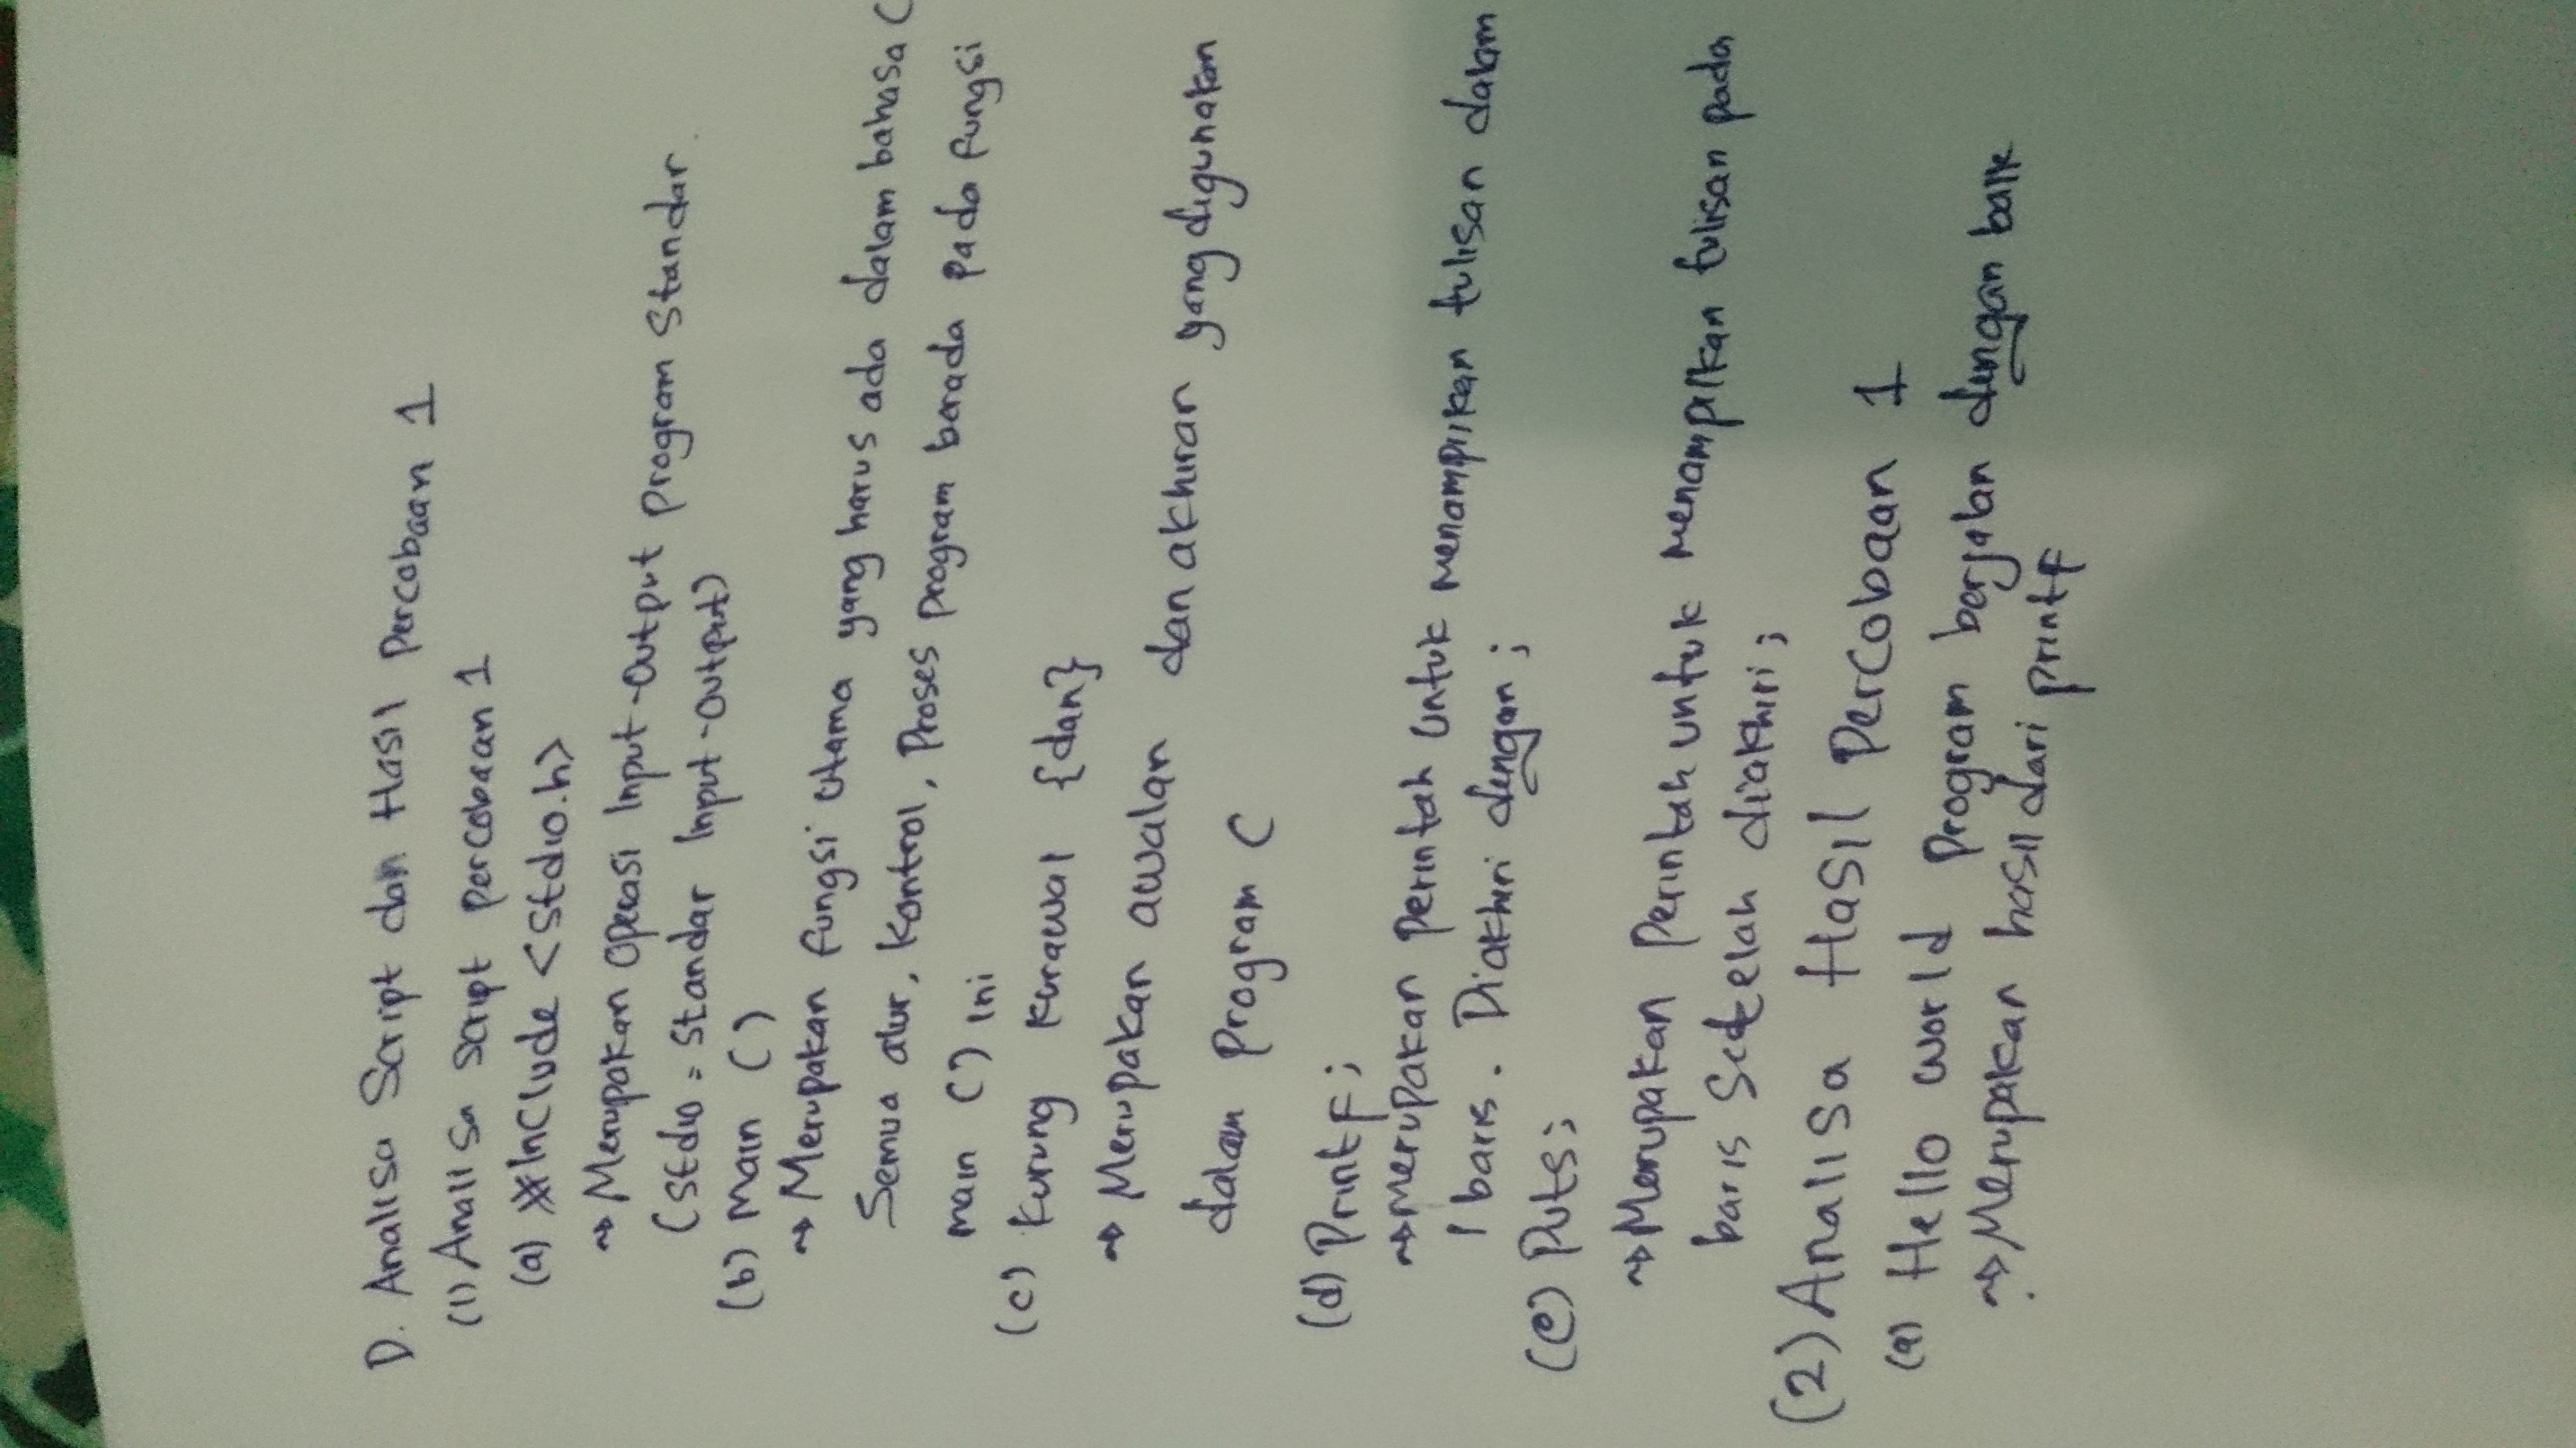 D. Analisa Script dan Hasil Percobaan 1
(1) Analisa Script percobaan 1
(a) #Include <stdio.h>
→ Merupakan Operasi Input-Output program Standar.
(stdio = Standar Input-Output)
(b) Main ()
→ Merupakan fungsi utama yang harus ada dalam bahasa C
Semua alur, Kontrol, Proses program berada pada fungsi
main () ini
(c) Kurung Kurawal {dan}
→ Merupakan awalan dan akhiran yang digunakan
dalam program C
(d) Printf;
→ merupakan perintah untuk menampilkan tulisan dalam
1 baris. Diakhiri dengan ;
(e) Puts;
→ Merupakan Perintah untuk menampilkan tulisan pada
baris Setelah diakhiri ;
(2) Analisa Hasil Percobaan 1
(a) Hello world Program berjalan dengan baik
→ Merupakan hasil dari printf